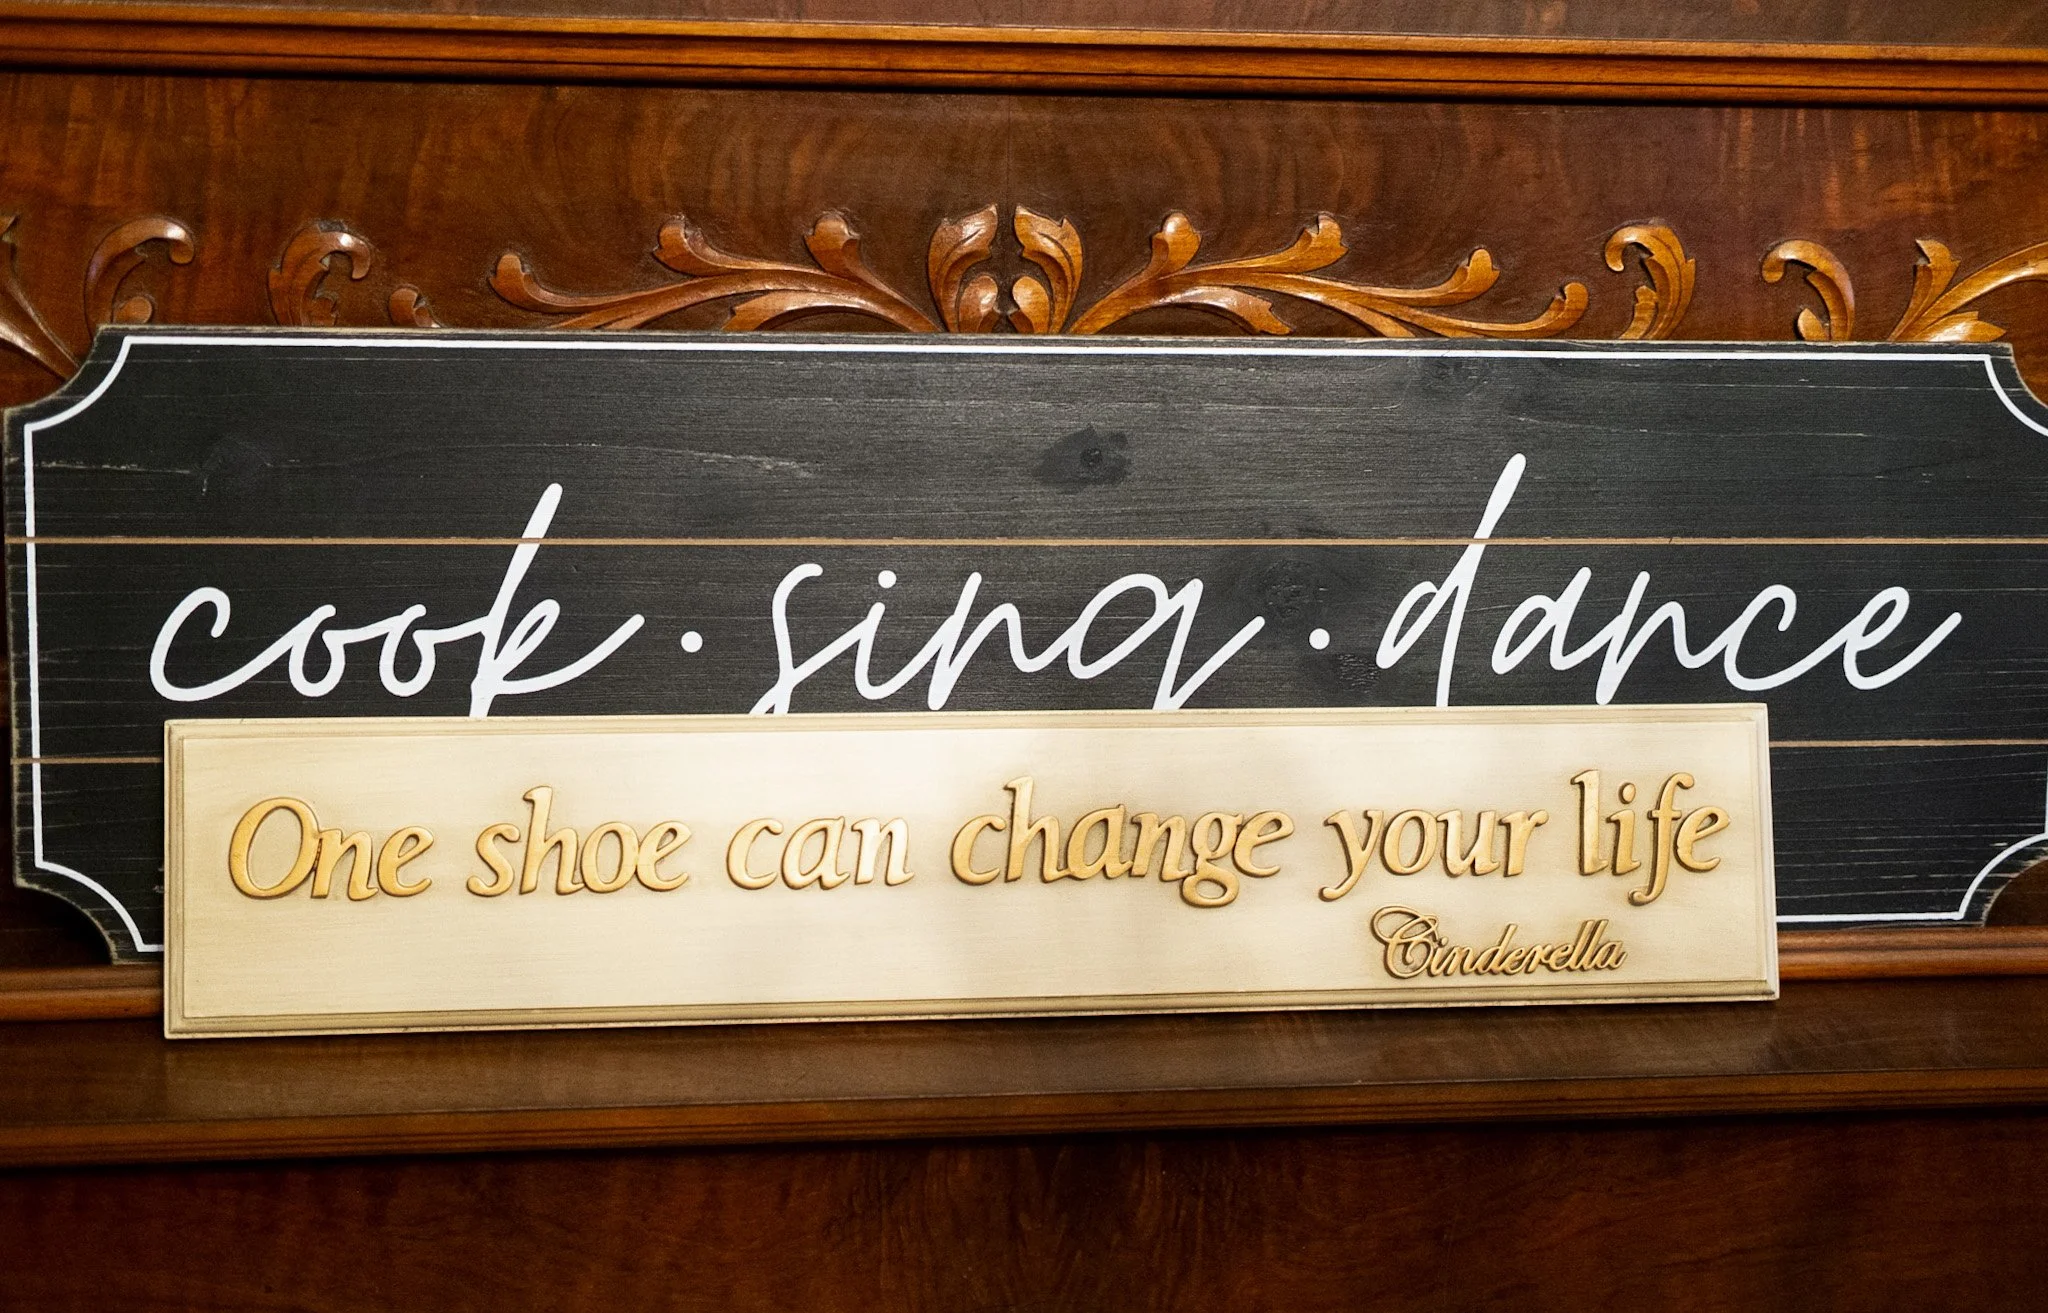 cook · sing · dance
One shoe can change your life
Cinderella